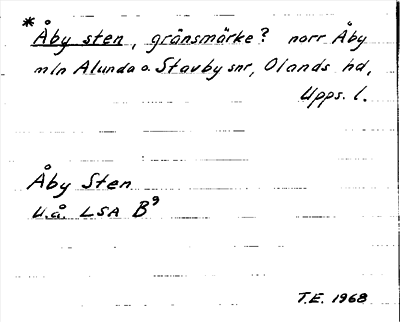 * Åby sten, gränsmärke? norr Åby
mln Alunda o. Stavby snr, Olands hd,
Upps. l.
Åby Sten
U.å. LSA B9
T.E. 1968